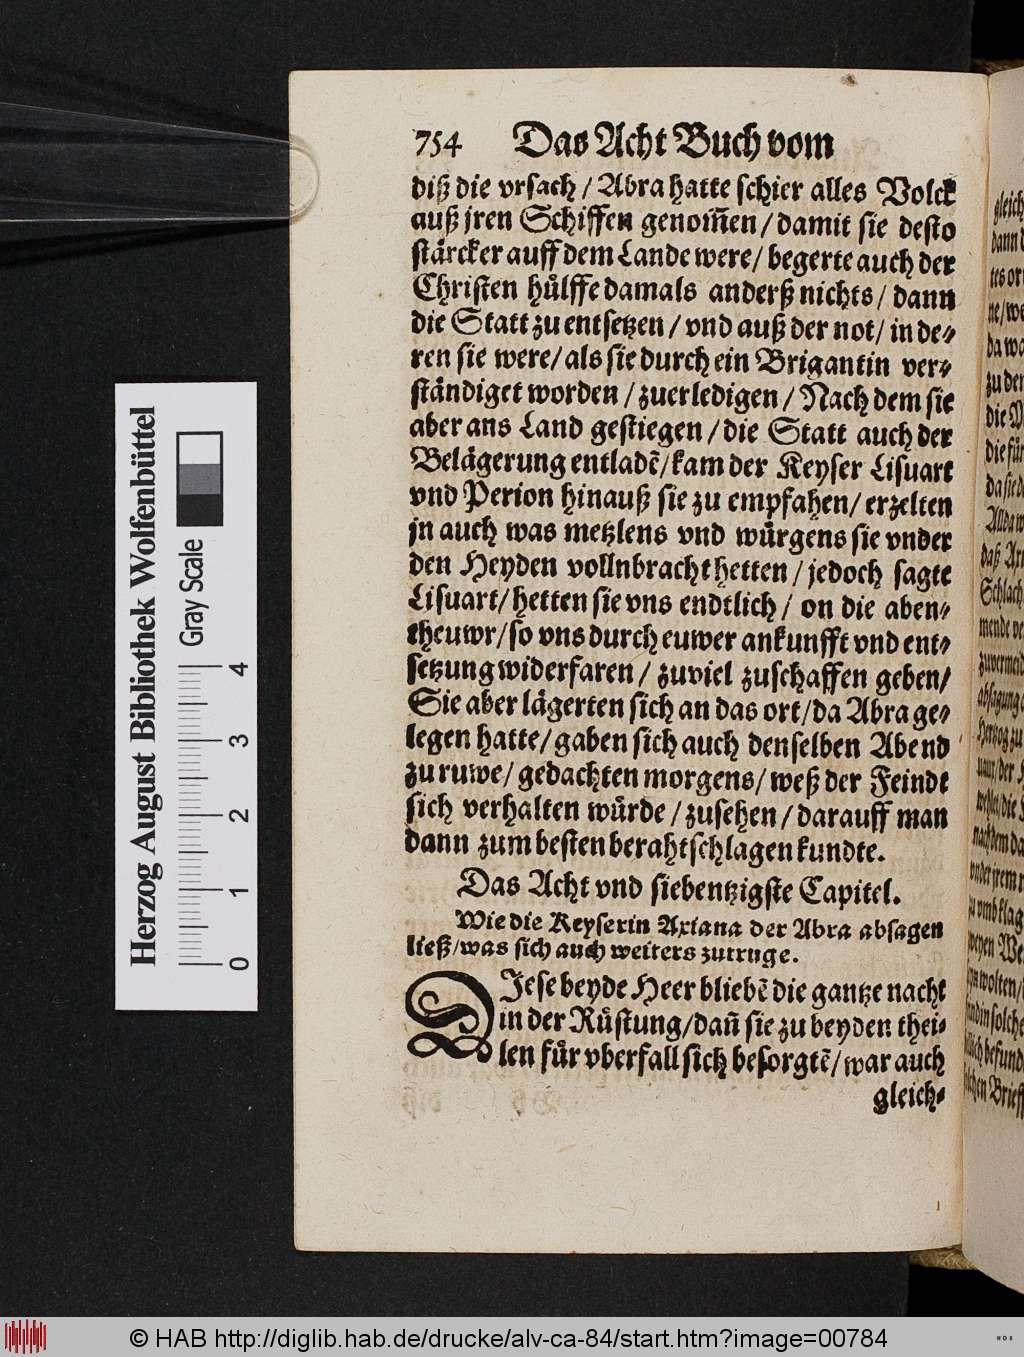 754 Das Acht Buch vom
diß die vrsach / Abra hatte schier alles Volck
auß jren Schiffen genom̃en / damit sie desto
stärcker auff dem Lande were / begerte auch der
Christen hülffe damals anderß nichts / dann
die Statt zu entsetzen / vnd auß der not / in de⸗
ren sie were / als sie durch ein Brigantin ver⸗
ständiget worden / zuerledigen / Nach dem sie
aber ans Land gestiegen / die Statt auch der
Belägerung entladẽ / kam der Keyser Lisuart
vnd Perion hinauß sie zu empfahen / erzelten
jn auch was metzlens vnd würgens sie vnder
den Heyden vollnbracht hetten / jedoch sagte
Lisuart / hetten sie vns endtlich / on die aben⸗
theuwr / so vns durch euwer ankunfft vnd ent⸗
setzung widerfaren / zuviel zuschaffen geben /
Sie aber lägerten sich an das ort / da Abra ge⸗
legen hatte / gaben sich auch denselben Abend
zu ruwe / gedachten morgens / weß der Feindt
sich verhalten würde / zusehen / darauff man
dann zum besten berahtschlagen kundte.
Das Acht vnd siebentzigste Capitel.
Wie die Keyserin Axiana der Abra absagen
ließ / was sich auch weiters zutruge.
DIese beyde Heer bliebẽ die gantze nacht
in der Rüstung / dañ sie zu beyden thei⸗
len für vberfall sich besorgtẽ / war auch
gleich⸗
Herzog August Bibliothek Wolfenbüttel
Gray Scale
0 1 2 3 4
© HAB http://diglib.hab.de/drucke/alv-ca-84/start.htm?image=00784